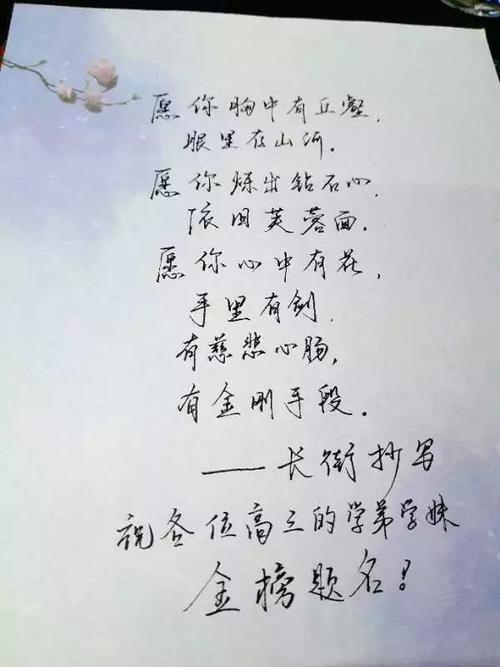 愿你胸中有丘壑,
眼里存山河.
愿你炼出钻石心,
依旧芙蓉面.
愿你心中有花,
手里有剑.
有慈悲心肠,
有金刚手段.
——长街抄写
祝各位高三的学弟学妹
金榜题名!